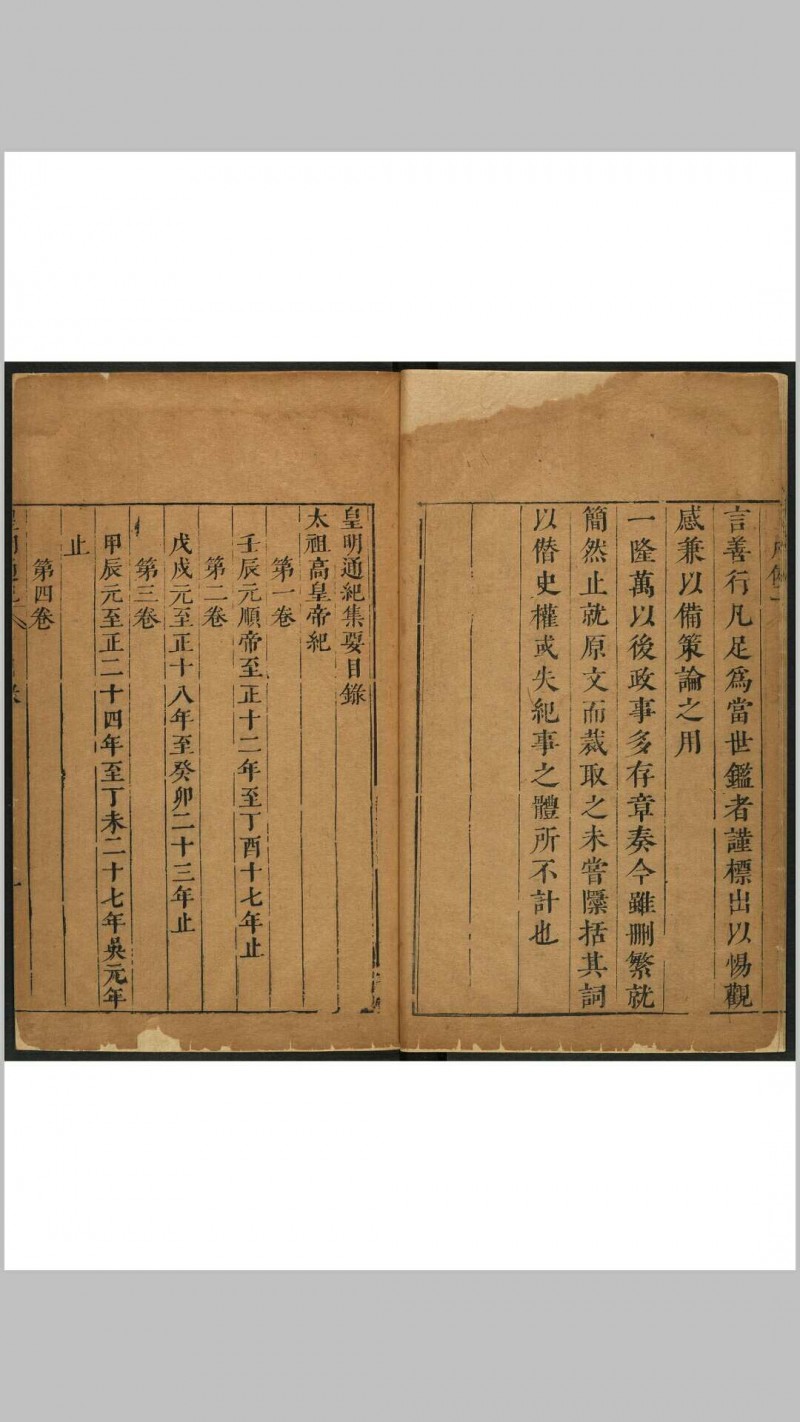 言善行凡足爲當世鑑者謹標出以惕觀
感兼以備策論之用
一隆萬以後政事多存章奏今雖刪繁就
簡然止就原文而裁取之未嘗檃括其詞
以僭史權或失紀事之體所不計也
皇明通紀集要目錄
太祖高皇帝紀
第一卷
壬辰元順帝至正十二年至丁酉十七年止
第二卷
戊戌元至正十八年至癸卯二十三年止
第三卷
甲辰元至正二十四年至丁未二十七年吳元年
止
第四卷